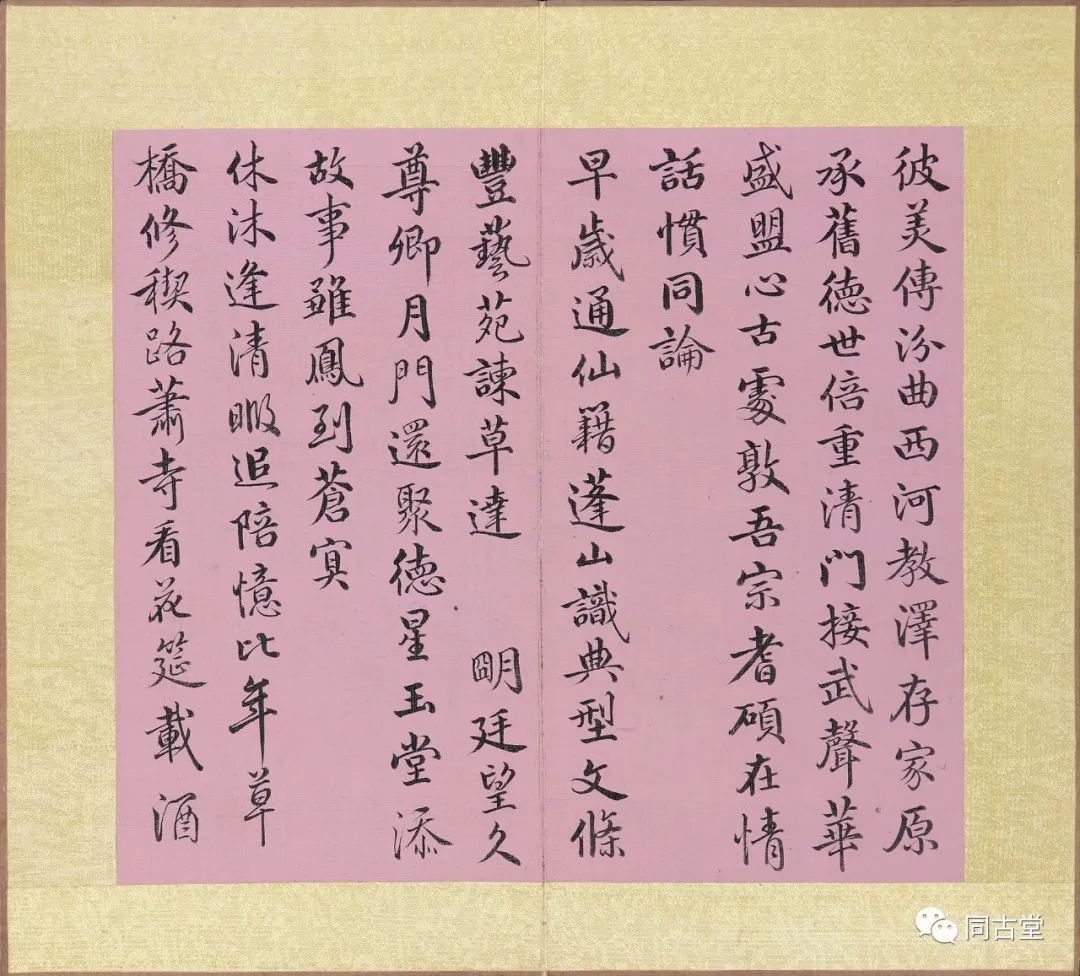 彼美傳汾曲西河教澤存家原
承舊德世倍重清門接武聲華
盛盟心古處敦吾宗耆碩在情
話慣同論
早歲通仙籍蓬山識典型文條
豐藝苑諫草達 朙廷望久
尊卿月門還聚德星玉堂添
故事雖鳳到蒼冥
休沐逢清暇追陪憶比年草
橋修稧路蕭寺看花筵載酒
同古堂